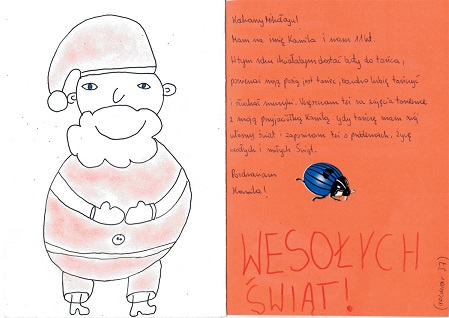 Kochany Mikołaju!
Mam na imię Kamila i mam 11 lat.
W tym roku chciałabym dostać buty do tańca,
ponieważ moją pasją jest taniec, bardzo lubię tańczyć
i słuchać muzyki. Uczęszczam też na zajęcia taneczne
z moją przyjaciółką Kamilą gdy tańczę mam swój
własny świat i zapominam też o problemach. Życzę
wesołych i miłych Świąt.
Pozdrawiam
Kamila!
WESOŁYCH
ŚWIĄT!
(rozmiar 37)